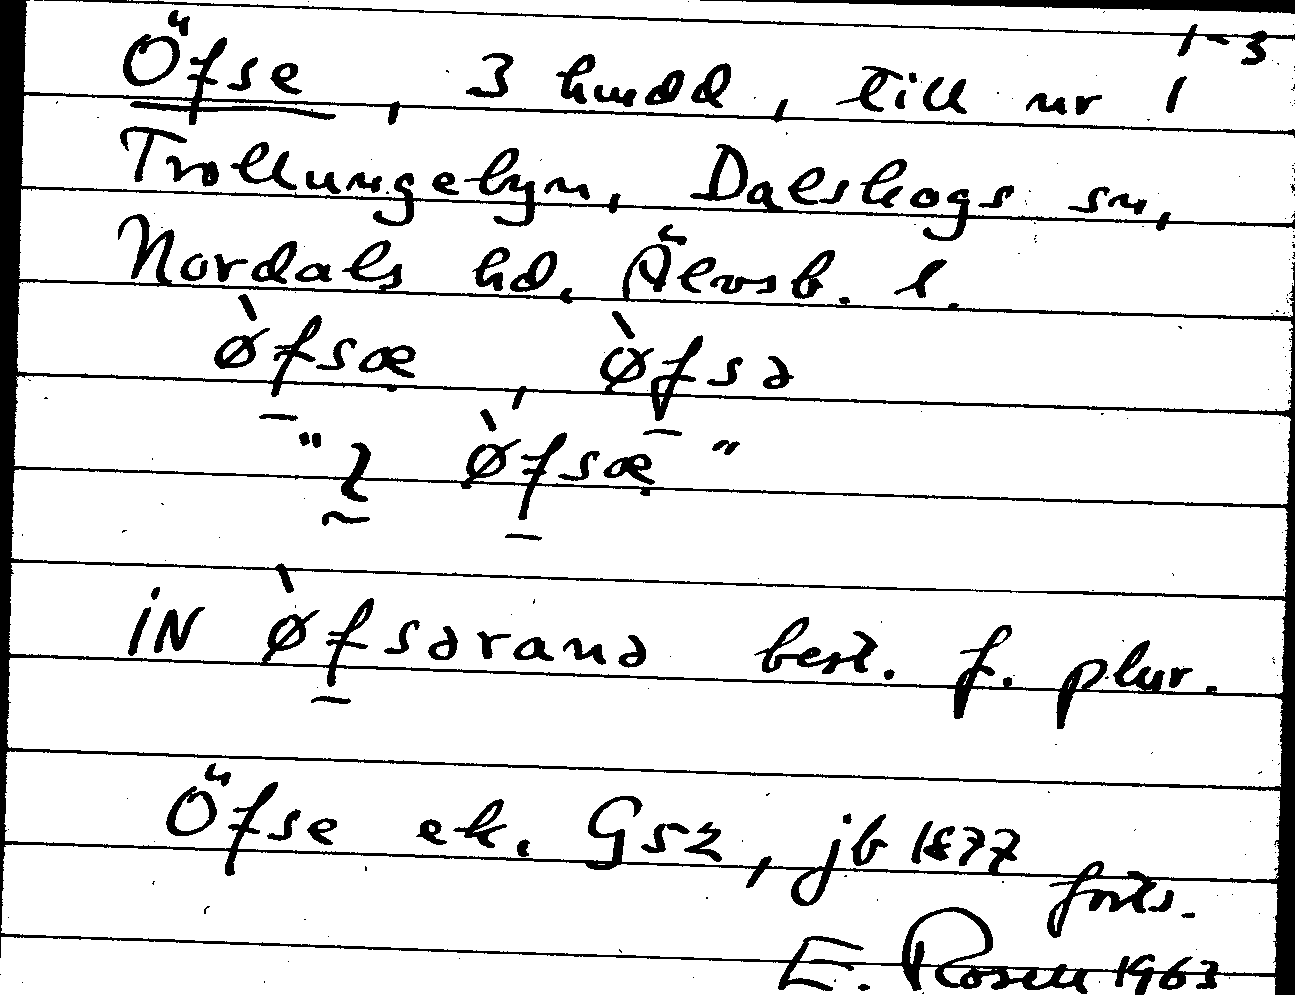 1-3
Öfse, 3 hmdd, till nr 1
Trollungebyn, Dalskogs sn,
Nordals hd. Älvsb. l.
ø̀fsæ, ø̀fsə
" ø̀fsæ "
iN ø̀fsərana best. f. plur.
Öfse ek. G52, jb 1877
forts.
E. Rosell 1963